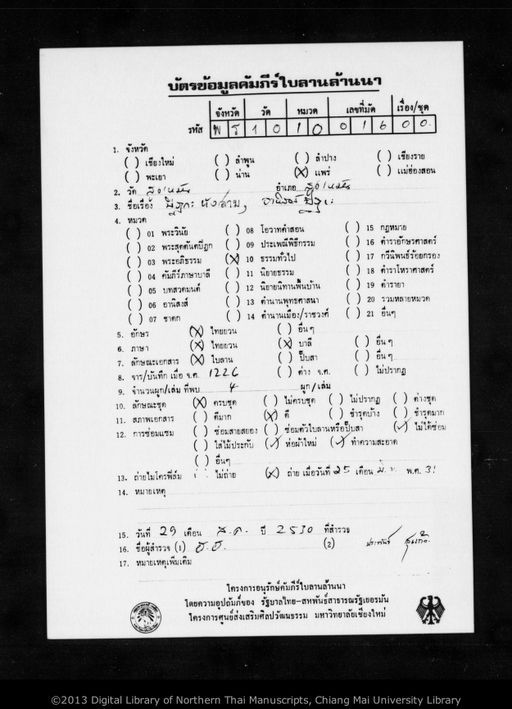 บัตรข้อมูลคัมภีร์ใบลานล้านนา
จังหวัด วัด หมวด เลขที่มัด เรื่อง/ชุด
รหัส พร 10 10 016 00
1. จังหวัด
( ) เชียงใหม่ ( ) ลำพูน ( ) ลำปาง ( ) เชียงราย
( ) พะเยา ( ) น่าน (X) แพร่ ( ) แม่ฮ่องสอน
2. วัด สูงเม่น อำเภอ สูงเม่น
3. ชื่อเรื่อง
4. หมวด
( ) 01 พระวินัย ( ) 08 โอวาทคำสอน ( ) 15 กฎหมาย
( ) 02 พระสุตตันตปิฎก ( ) 09 ประเพณีพิธีกรรม ( ) 16 ตำราอักษรศาสตร์
( ) 03 พระอภิธรรม (X) 10 ธรรมทั่วไป ( ) 17 กวีนิพนธ์ร้อยกรอง
( ) 04 คัมภีร์ภาษาบาลี ( ) 11 นิยายธรรม ( ) 18 ตำราโหราศาสตร์
( ) 05 บทสวดมนต์ ( ) 12 นิยายนิทานพื้นบ้าน ( ) 19 ตำรายา
( ) 06 อานิสงส์ ( ) 13 ตำนานพุทธศาสนา ( ) 20 รวมหลายหมวด
( ) 07 ชาดก ( ) 14 ตำนานเมือง/ราชวงศ์ ( ) 21 อื่นๆ
5. อักษร (X) ไทยยวน ( ) อื่นๆ
6. ภาษา (X) ไทยยวน (X) บาลี ( ) อื่นๆ
7. ลักษณะเอกสาร (X) ใบลาน ( ) ปั๊บสา ( ) อื่นๆ
8. จาร/บันทึก เมื่อ จ.ศ. 1226 ( ) ค่าง จ.ศ. ( ) ไม่ปรากฏ
9. จำนวนผูก/เล่ม ที่พบ 4 ผูก/เล่ม
10. ลักษณะชุด (X) ครบชุด ( ) ไม่ครบชุด ( ) ไม่ปรากฏ ( ) ต่างชุด
11. สภาพเอกสาร ( ) ดีมาก (X) ดี ( ) ชำรุดบ้าง ( ) ชำรุดมาก
12. การซ่อมแซม ( ) ซ่อมสายสยอง ( ) ซ่อมตัวใบลานหรือปั๊บสา (✓) ไม่ได้ซ่อม
( ) ใส่ไม้ประกับ (✓) ห่อผ้าใหม่ (✓) ทำความสะอาด
( ) อื่นๆ
13. ถ่ายไมโครฟิล์ม ( ) ไม่ถ่าย (X) ถ่าย เมื่อวันที่ 25 เดือน มี.ค. พ.ศ. 31
14. หมายเหตุ
15. วันที่ 29 เดือน ส.ค. ปี 2530 ที่สำรวจ
16. ชื่อผู้สำรวจ (1) (2)
17. หมายเหตุเพิ่มเติม
โครงการอนุรักษ์คัมภีร์ใบลานล้านนา
โดยความอุปถัมภ์ของ รัฐบาลไทย-สหพันธ์สาธารณรัฐเยอรมัน
โครงการศูนย์ส่งเสริมศิลปวัฒนธรรม มหาวิทยาลัยเชียงใหม่
©2013 Digital Library of Northern Thai Manuscripts, Chiang Mai University Library